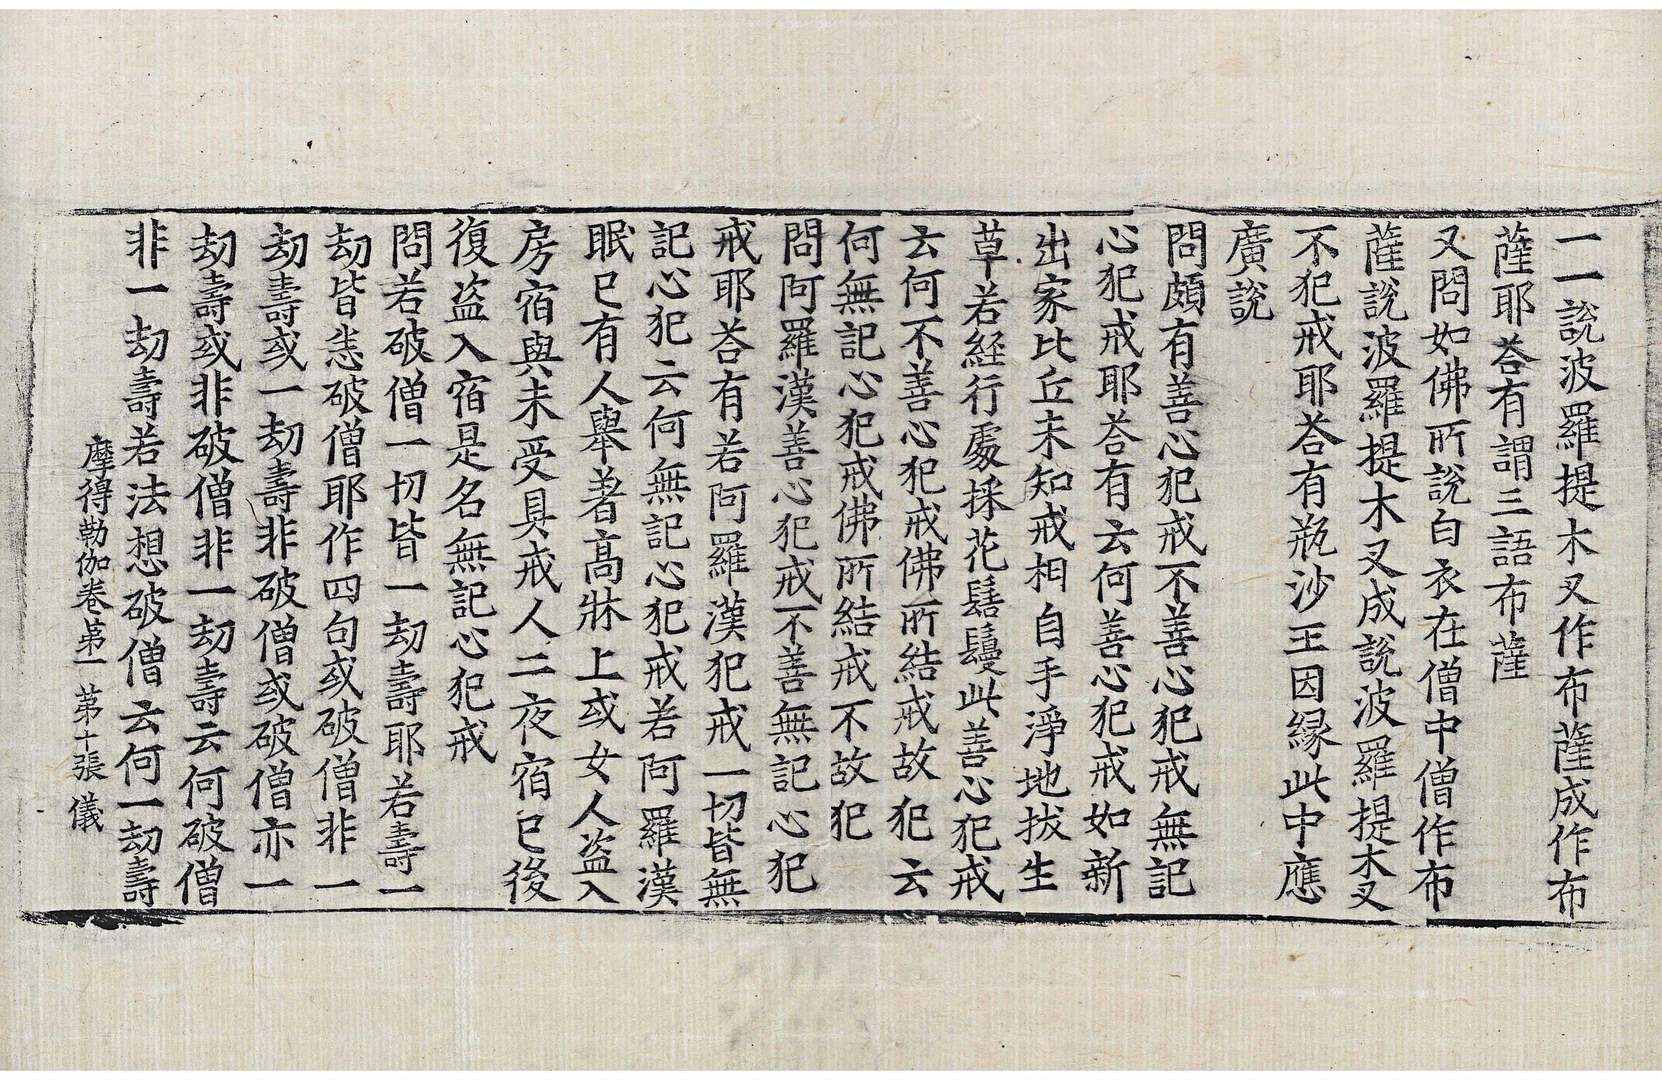 一一說波羅提木叉作布薩成作布
薩耶荅有謂三語布薩
又問如佛所說白衣在僧中僧作布
薩說波羅提木叉成說波羅提木叉
不犯戒耶荅有瓶沙王因縁此中應
廣說
問頗有善心犯戒不善心犯戒無記
心犯戒耶荅有云何善心犯戒如新
出家比丘未知戒相自手淨地拔生
草若經行處採花鬘此善心犯戒
云何不善心犯戒佛所結戒故犯云
何無記心犯戒佛所結戒不故犯
問阿羅漢善心犯戒不善無記心犯
戒耶荅有若阿羅漢犯戒一切皆無
記心犯云何無記心犯戒若阿羅漢
眠已有人舉著高牀上或女人盜入
房宿與未受具戒人二夜宿已後
復盜入宿是名無記心犯戒
問若破僧一切皆一劫壽耶若壽一
劫皆悉破僧耶作四句或破僧非一
劫壽或一劫壽非破僧或破僧亦一
劫壽或非破僧非一劫壽云何破僧
非一劫壽若法想破僧云何一劫壽
摩得勒伽卷苐一 苐十張 儀